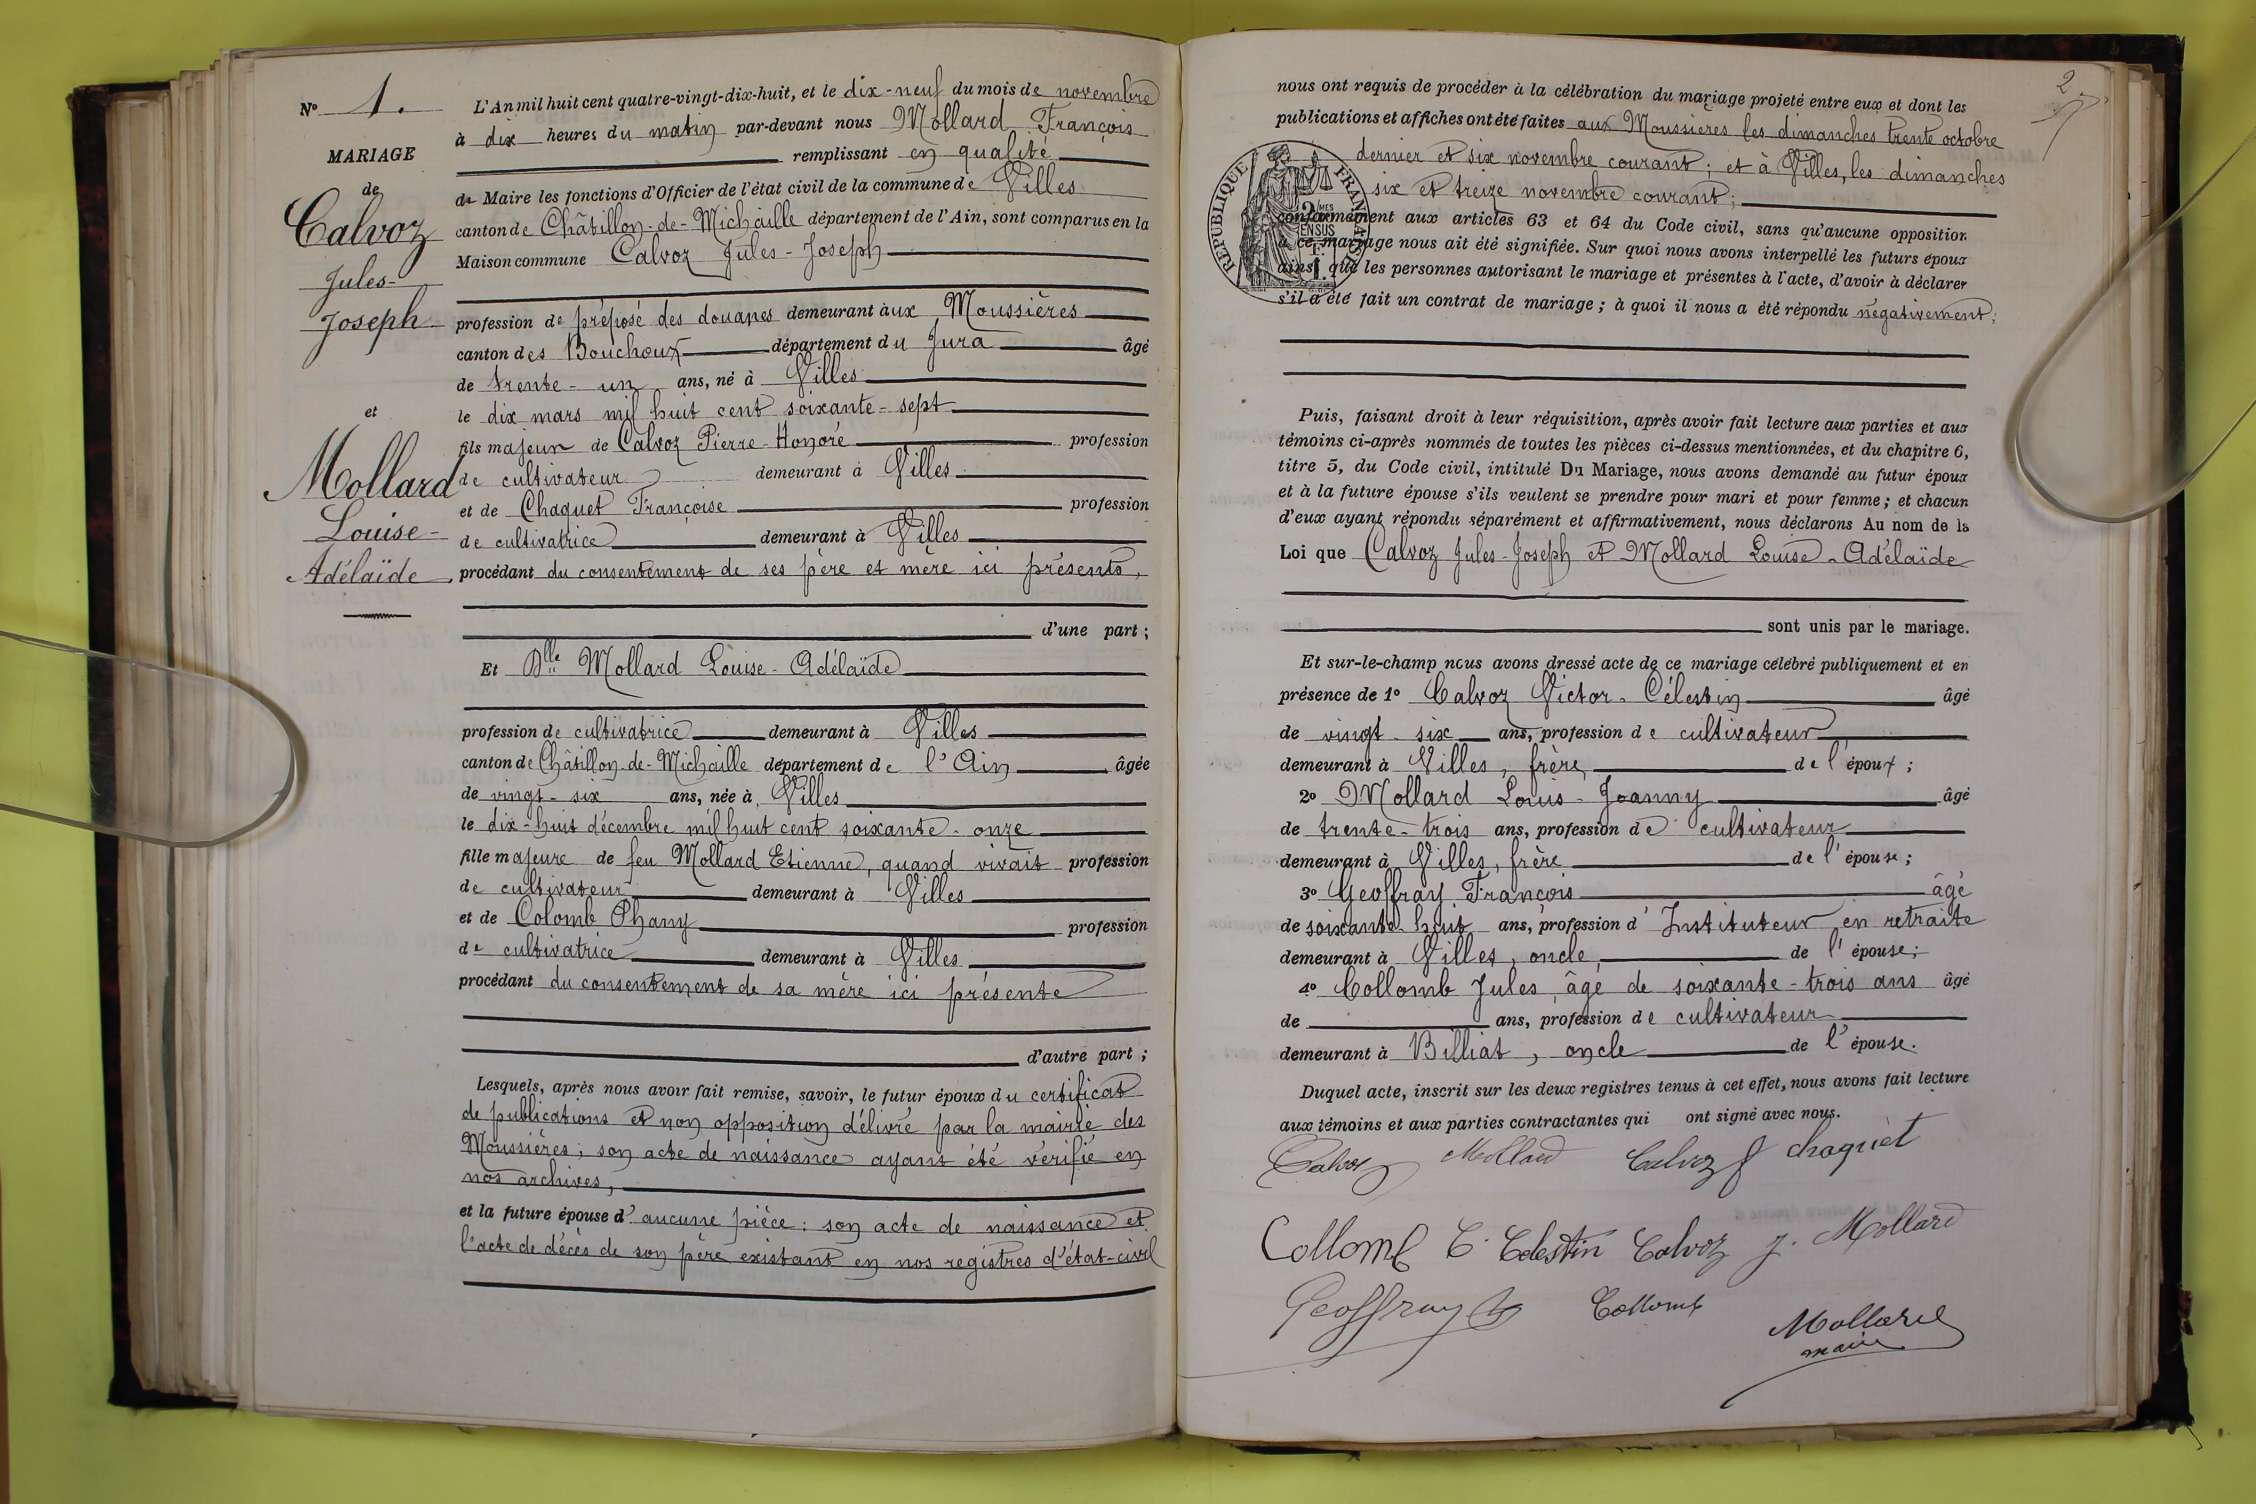 N° 1.
MARIAGE
de
Calvoz
Jules-
Joseph
et
Mollard
Louise-
Adélaïde
L'An mil huit cent quatre-vingt-dix-huit, et le dix-neuf du mois de novembre
à dix heures du matin par-devant nous Mollard François
remplissant en qualité
de Maire les fonctions d'Officier de l'état civil de la commune de Villes
canton de Châtillon-de-Michaille département de l'Ain, sont comparus en la
Maison commune Calvoz Jules-Joseph
profession de préposé des douanes demeurant aux Moussières
canton des Bouchoux département du Jura âgé
de trente-un ans, né à Villes
le dix mars mil huit cent soixante-sept
fils majeur de Calvoz Pierre-Honoré profession
de cultivateur demeurant à Villes
et de Chaquet Françoise profession
de cultivatrice demeurant à Villes
procédant du consentement de ses père et mère ici présents,
d'une part;
Et Dlle Mollard Louise-Adélaïde
profession de cultivatrice demeurant à Villes
canton de Châtillon-de-Michaille département de l'Ain âgée
de vingt-six ans, née à Villes
le dix-huit décembre mil huit cent soixante-onze
fille majeure de feu Mollard Etienne, quand vivait profession
de cultivateur demeurant à Villes
et de Colomb Phany profession
de cultivatrice demeurant à Villes
procédant du consentement de sa mère ici présente
d'autre part;
Lesquels, après nous avoir fait remise, savoir, le futur époux du certificat
de publications et non opposition délivré par la mairie des
Moussières; son acte de naissance ayant été vérifié en
nos archives,
et la future épouse d'aucune pièce: son acte de naissance et
l'acte de décès de son père existant en nos registres d'état-civil
2
nous ont requis de procéder à la célébration du mariage projeté entre eux et dont les
publications et affiches ont été faites aux Moussières les dimanches trente octobre
dernier et six novembre courant; et à Villes, les dimanches
six et treize novembre courant;
RÉPUBLIQUE FRANÇAISE
conformément aux articles 63 et 64 du Code civil, sans qu'aucune opposition
à ce mariage nous ait été signifiée. Sur quoi nous avons interpellé les futurs époux
ainsi que les personnes autorisant le mariage et présentes à l'acte, d'avoir à déclarer
s'il a été fait un contrat de mariage; à quoi il nous a été répondu négativement;
Puis, faisant droit à leur réquisition, après avoir fait lecture aux parties et aux
témoins ci-après nommés de toutes les pièces ci-dessus mentionnées, et du chapitre 6,
titre 5, du Code civil, intitulé Du Mariage, nous avons demandé au futur époux
et à la future épouse s'ils veulent se prendre pour mari et pour femme; et chacun
d'eux ayant répondu séparément et affirmativement, nous déclarons Au nom de la
Loi que Calvoz Jules-Joseph et Mollard Louise-Adélaïde
sont unis par le mariage.
Et sur-le-champ nous avons dressé acte de ce mariage célébré publiquement et en
présence de 1° Calvoz Victor-Célestin âgé
de vingt-six ans, profession de cultivateur
demeurant à Villes, frère de l'époux;
2° Mollard Louis-Joanny âgé
de trente-trois ans, profession de cultivateur
demeurant à Villes, frère de l'épouse;
3° Geoffray François âgé
de soixante huit ans, profession d'Instituteur en retraite
demeurant à Villes, oncle, de l'épouse;
4° Collomb Jules, âgé de soixante-trois ans âgé
de ans, profession de cultivateur
demeurant à Billiat, oncle de l'épouse.
Duquel acte, inscrit sur les deux registres tenus à cet effet, nous avons fait lecture
aux témoins et aux parties contractantes qui ont signé avec nous.
Calvoz Mollard Calvoz f chaquet
Collomb C. Celestin Calvoz J. Mollard
Geoffray Collomb Mollard
maire